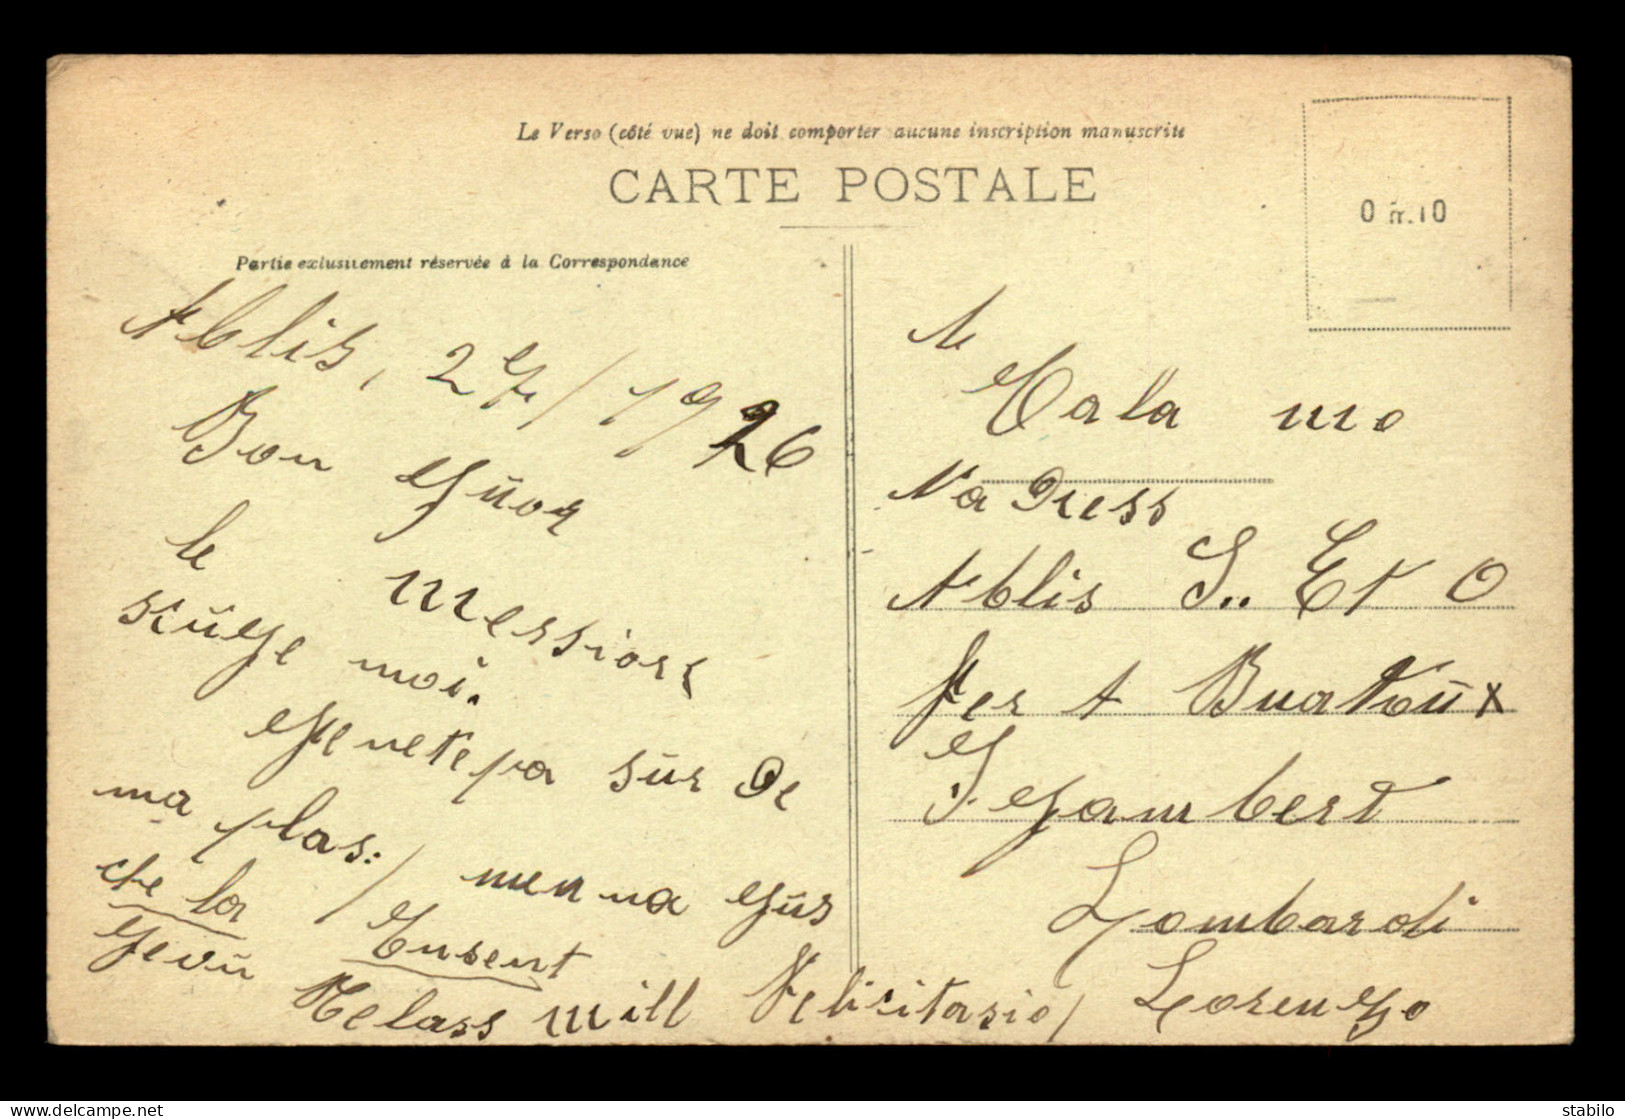 Le Verso (côté vue) ne doit comporter aucune inscription manuscrite
CARTE POSTALE
0 fr.10
Partie exclusivement réservée à la Correspondance
Ablis, 27/1926
Bon Guor
le messiors
scuge moi.
Genete pa sur De
ma plas: / menna gus
che la Cusent
Gevu Melass mill Felicitasio/
A
Cala mo
N'a Dress
Ablis S.. Et O
Fer A Buatoux
J. Gambert
Lombardi
Lorenzo
delcampe.net
stabilo